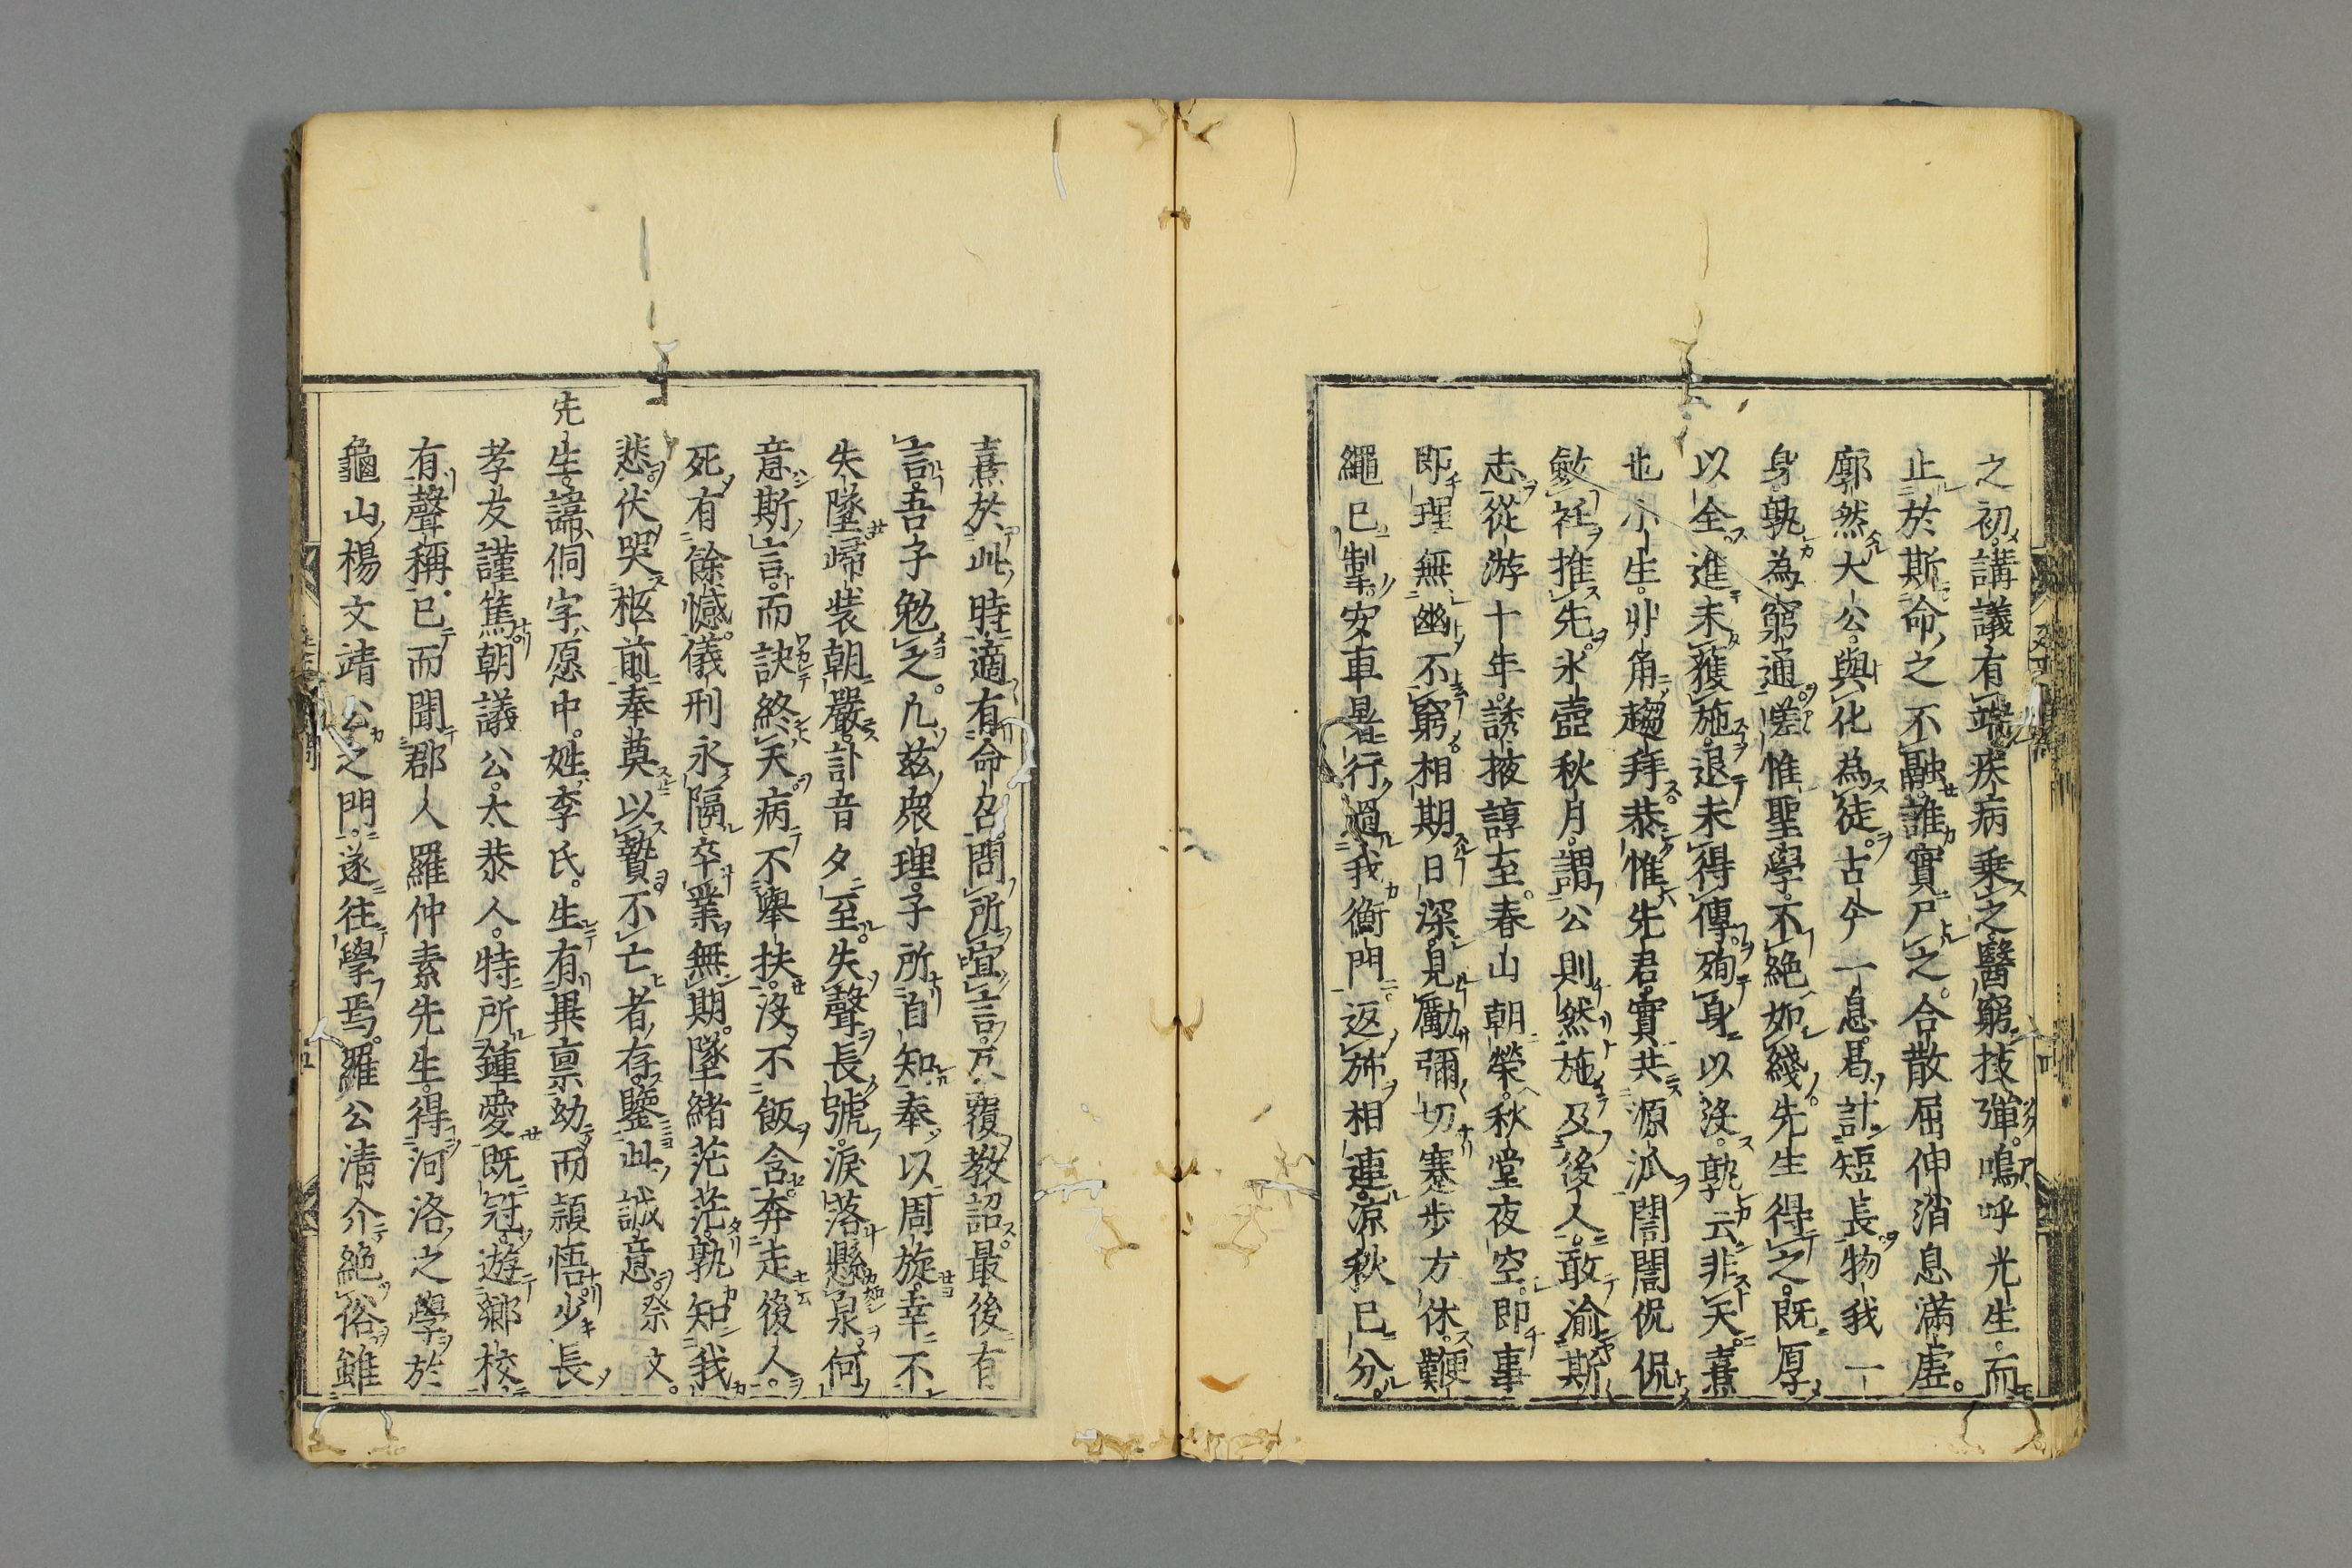 之初講議有端疾病乗之醫窮技彈嗚呼光生而
止於斯命之不融誰實尸之合散屈伸消息滿虚
廓然大公與化為徒古今一息曷計短長物我一
身孰為窮通嗟惟聖學不絶如綫先生得之既厚
以全進未獲施退未得傳殉身以没孰云非天熹
也小生丱角趨拜恭惟先君實共源派誾誾侃侃
斂衽推先氷壺秋月謂公則然施及後人敢渝斯
志從游十年誘掖諄至春山朝榮秋堂夜空即事
即理無幽不窮相期日深見勵彌切蹇歩方休鞭
繩已掣安車暑行過我衡門返旆相遭凉秋已分
熹於此時適有命召問所宜言反覆教詔最後有
言吾子勉之凢兹衆理子所自知奉以周旋幸不
失墜歸装朝嚴訃音夕至失聲長號淚落懸泉何
意斯言而訣終天病不舉扶没不飯含奔走後人
死有餘憾儀刑永隔卒業無期墜緒茫茫孰知我
悲伏哭柩前奉奠以贄不亡者存鑒此誠意祭文
先生諱侗字愿中姓李氏生有異禀幼而頴悟少長
孝友謹篤朝議公太恭人特所鍾愛既冠遊鄉校
有聲稱已而聞郡人羅仲素先生得河洛之學於
龜山楊文靖公之門遂往學焉羅公清介絶俗雖